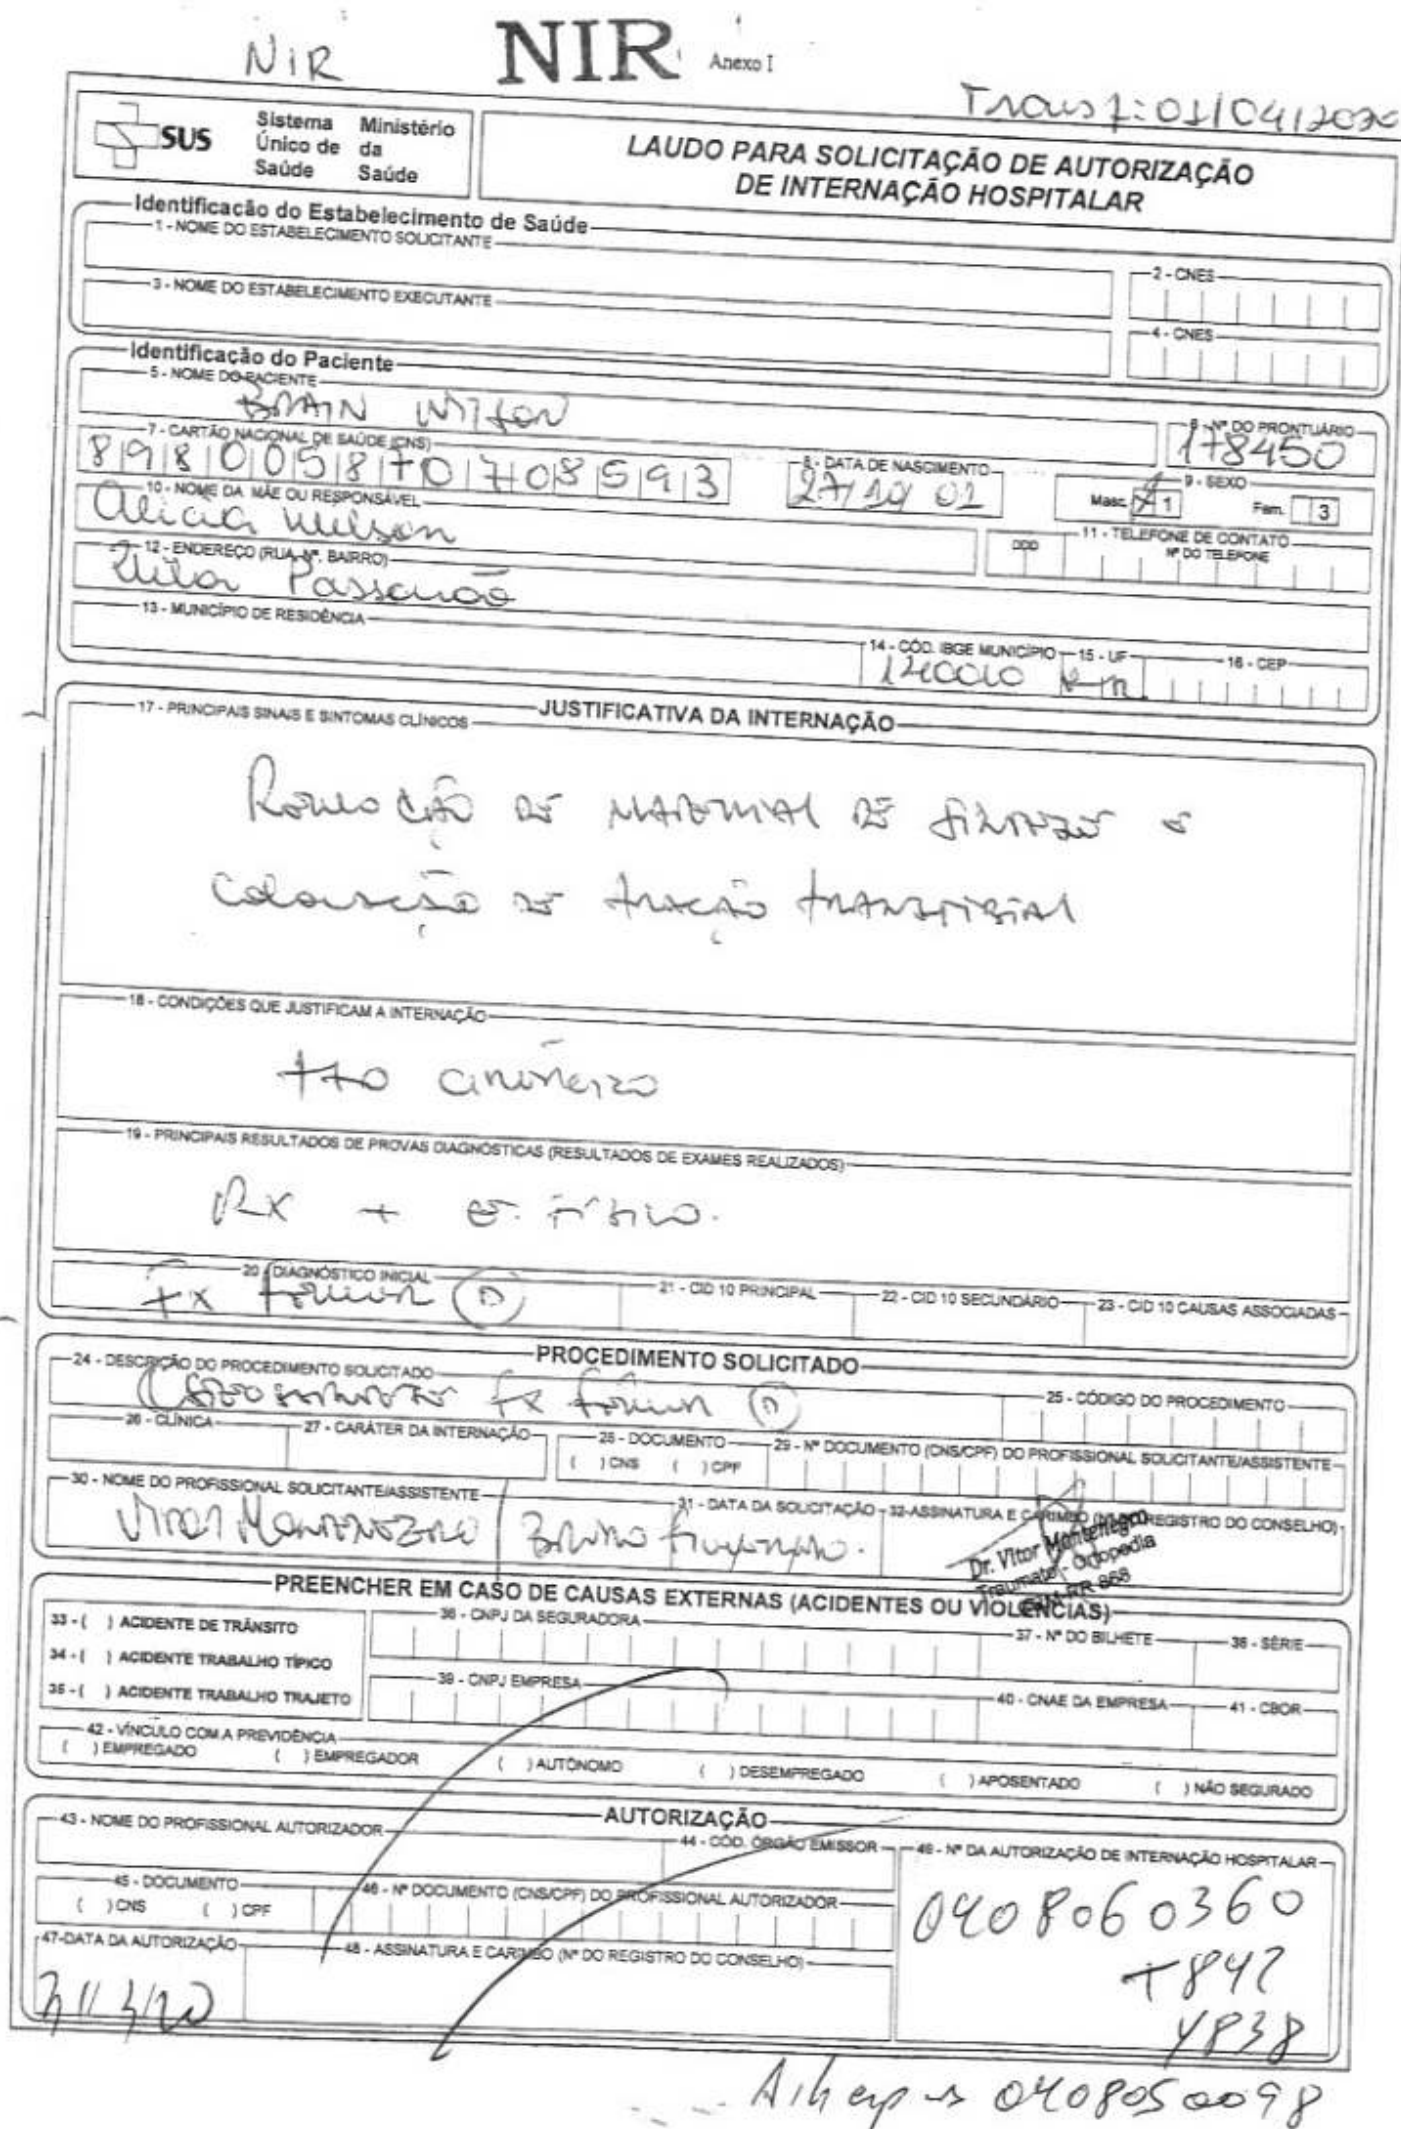 NIR NIR Anexo I
Transf: 01/04/2020
SUS
Sistema Único de Saúde
Ministério da Saúde
LAUDO PARA SOLICITAÇÃO DE AUTORIZAÇÃO
DE INTERNAÇÃO HOSPITALAR
Identificação do Estabelecimento de Saúde
1 - NOME DO ESTABELECIMENTO SOLICITANTE
2 - CNES
3 - NOME DO ESTABELECIMENTO EXECUTANTE
4 - CNES
Identificação do Paciente
5 - NOME DO PACIENTE
6 - Nº DO PRONTUÁRIO
BRAIN
178450
7 - CARTÃO NACIONAL DE SAÚDE (CNS)
8 - DATA DE NASCIMENTO
9 - SEXO
898005870708593
27/10/01
Masc. X 1 Fem. 3
10 - NOME DA MÃE OU RESPONSÁVEL
11 - TELEFONE DE CONTATO
DDD Nº DO TELEFONE
Alicia Wilson
12 - ENDEREÇO (RUA, Nº, BAIRRO)
13 - MUNICÍPIO DE RESIDÊNCIA
14 - CÓD. IBGE MUNICÍPIO
15 - UF
16 - CEP
140010
JUSTIFICATIVA DA INTERNAÇÃO
17 - PRINCIPAIS SINAIS E SINTOMAS CLÍNICOS
Remoção de material de síntese e
colocação de tração transtibial
18 - CONDIÇÕES QUE JUSTIFICAM A INTERNAÇÃO
tto cirúrgico
19 - PRINCIPAIS RESULTADOS DE PROVAS DIAGNÓSTICAS (RESULTADOS DE EXAMES REALIZADOS)
RX + e. físico.
20 - DIAGNÓSTICO INICIAL
21 - CID 10 PRINCIPAL
22 - CID 10 SECUNDÁRIO
23 - CID 10 CAUSAS ASSOCIADAS
Fx fêmur D
PROCEDIMENTO SOLICITADO
24 - DESCRIÇÃO DO PROCEDIMENTO SOLICITADO
25 - CÓDIGO DO PROCEDIMENTO
Osteossíntese fx fêmur D
26 - CLÍNICA
27 - CARÁTER DA INTERNAÇÃO
28 - DOCUMENTO
( ) CNS ( ) CPF
29 - Nº DOCUMENTO (CNS/CPF) DO PROFISSIONAL SOLICITANTE/ASSISTENTE
30 - NOME DO PROFISSIONAL SOLICITANTE/ASSISTENTE
31 - DATA DA SOLICITAÇÃO
32-ASSINATURA E CARIMBO (Nº DO REGISTRO DO CONSELHO)
Vitor Montenegro / Bruno
Dr. Vitor Montenegro
Traumato - Ortopedia
CRM-RR 868
PREENCHER EM CASO DE CAUSAS EXTERNAS (ACIDENTES OU VIOLÊNCIAS)
33 - ( ) ACIDENTE DE TRÂNSITO
36 - CNPJ DA SEGURADORA
37 - Nº DO BILHETE
38 - SÉRIE
34 - ( ) ACIDENTE TRABALHO TÍPICO
35 - ( ) ACIDENTE TRABALHO TRAJETO
39 - CNPJ EMPRESA
40 - CNAE DA EMPRESA
41 - CBOR
42 - VÍNCULO COM A PREVIDÊNCIA
( ) EMPREGADO ( ) EMPREGADOR ( ) AUTÔNOMO ( ) DESEMPREGADO ( ) APOSENTADO ( ) NÃO SEGURADO
AUTORIZAÇÃO
43 - NOME DO PROFISSIONAL AUTORIZADOR
44 - CÓD. ÓRGÃO EMISSOR
49 - Nº DA AUTORIZAÇÃO DE INTERNAÇÃO HOSPITALAR
45 - DOCUMENTO
( ) CNS ( ) CPF
46 - Nº DOCUMENTO (CNS/CPF) DO PROFISSIONAL AUTORIZADOR
0408060360
47-DATA DA AUTORIZAÇÃO
48 - ASSINATURA E CARIMBO (Nº DO REGISTRO DO CONSELHO)
31/3/20
T842
Y838
0408050098